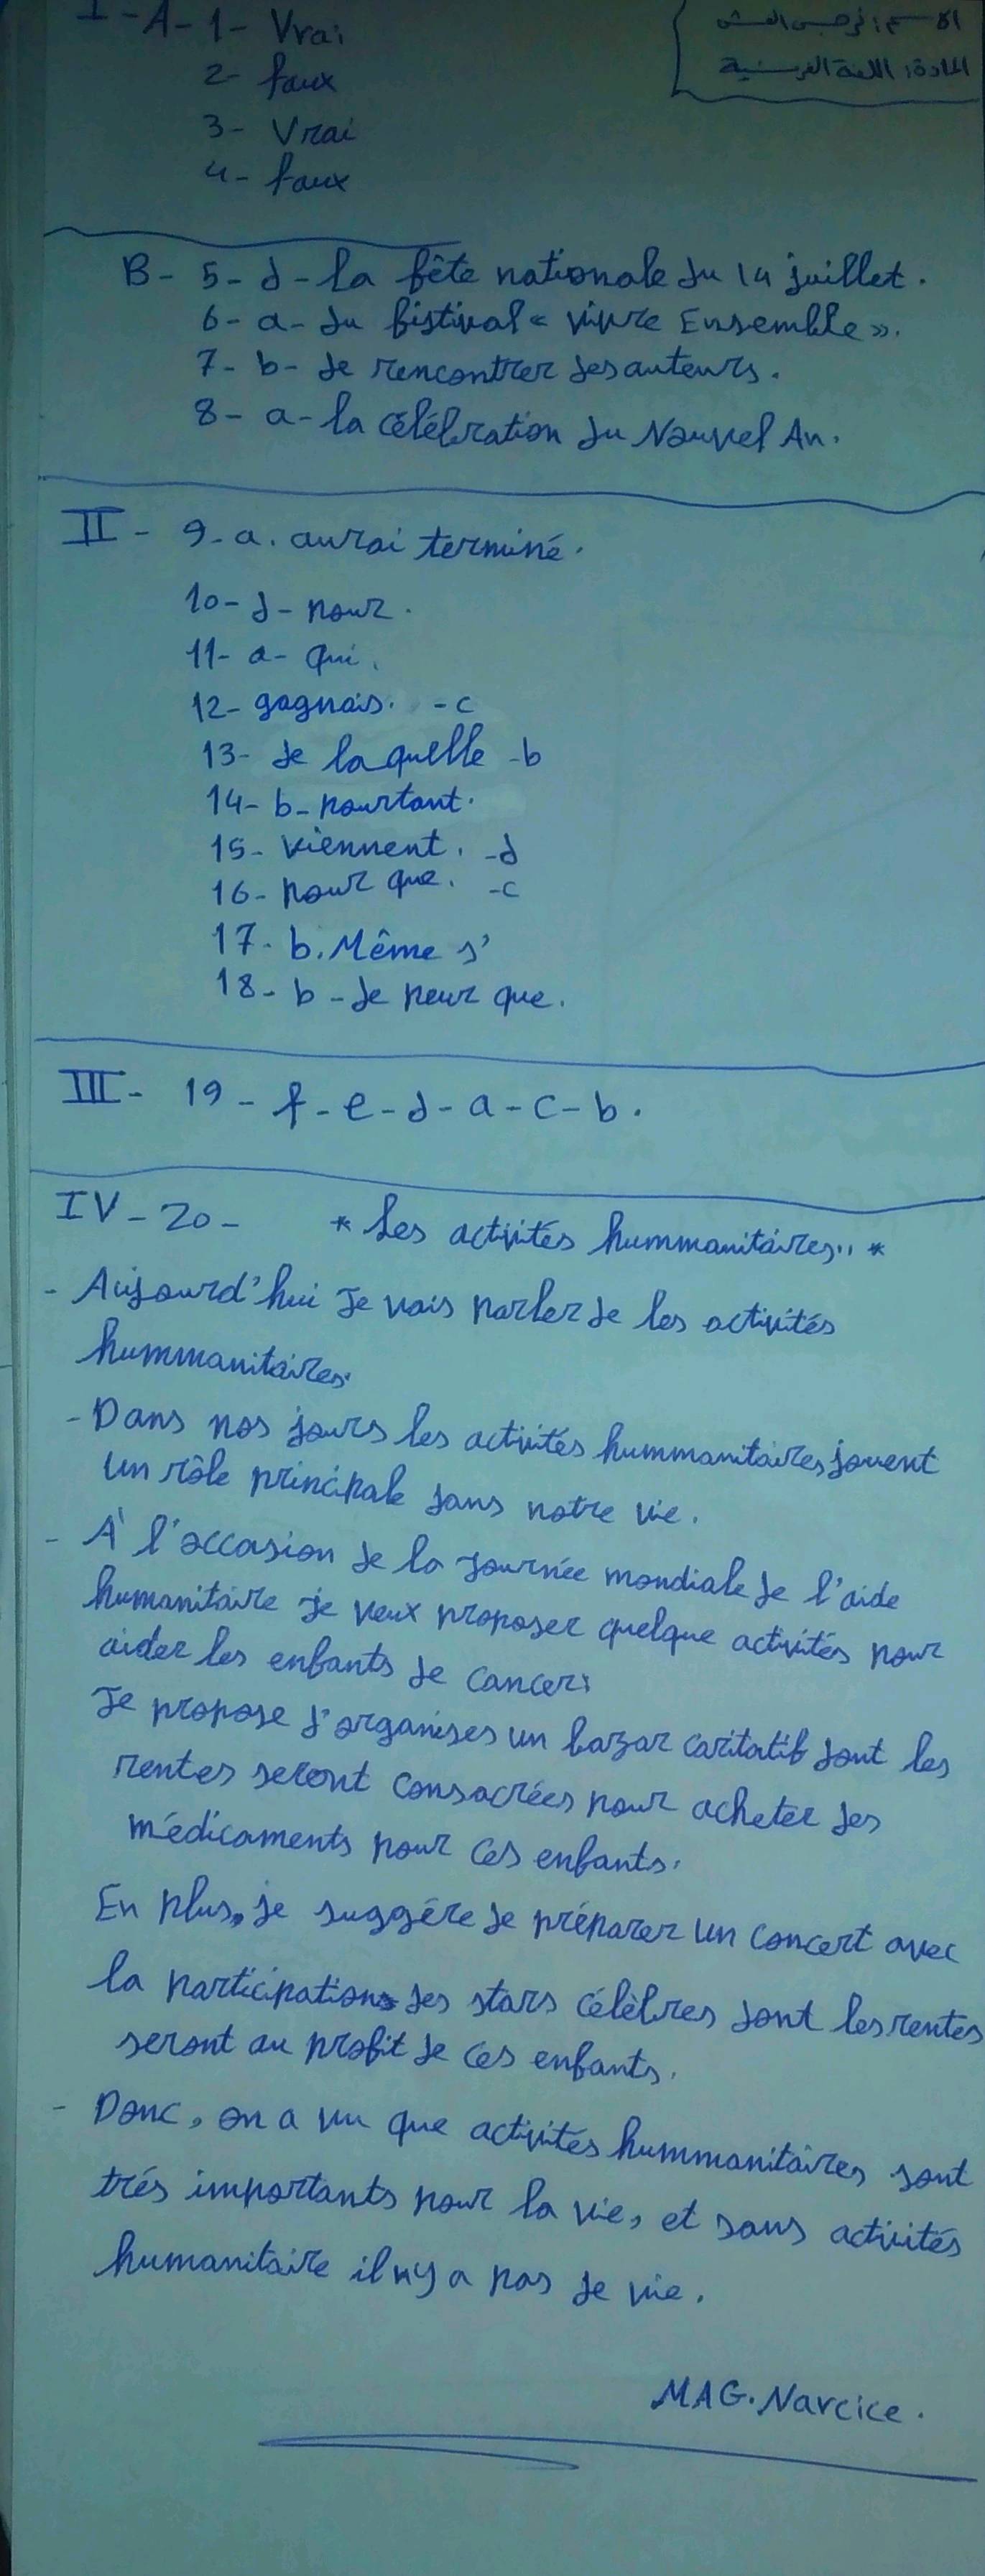 I-A-1- Vrai
الاسم: نرجس
المادة: اللغة الفرنسية
2- faux
3- Vrai
4- faux
B- 5- d- la fête nationale du 14 juillet.
6- a- du fistival « vivre Ensemble ».
7- b- de rencontrer des auteurs.
8- a- la célébration du Nouvel An.
II- 9- a. aurai terminé.
10- d- pour.
11- a- qui.
12- gagnais. -c
13- de laquelle -b
14- b- pourtant.
15- viennent. -d
16- pour que. -c
17- b. Même s'
18- b- de peur que.
III- 19- f-e-d-a-c-b.
IV- 20- * Les activités hummanitaires.. *
- Aujourd'hui je vais parler de les activités
hummanitaires.
- Dans nos jours les activités hummanitaires jouent
un rôle principale dans notre vie.
- À l'occasion de la journée mondiale de l'aide
humanitaire je veux proposer quelque activités pour
aider les enfants de cancer:
Je propose d'organises un bazar caritatif dont les
rentes seront consacrées pour acheter des
médicaments pour ces enfants.
En plus, je suggére de préparer un concert avec
la participations des stars célèbres dont les rentes
seront au profit de ces enfants.
- Donc, on a vu que activités hummanitaires sont
trés importants pour la vie, et sans activités
humanitaire il n'y a pas de vie.
MAG. Narcice.